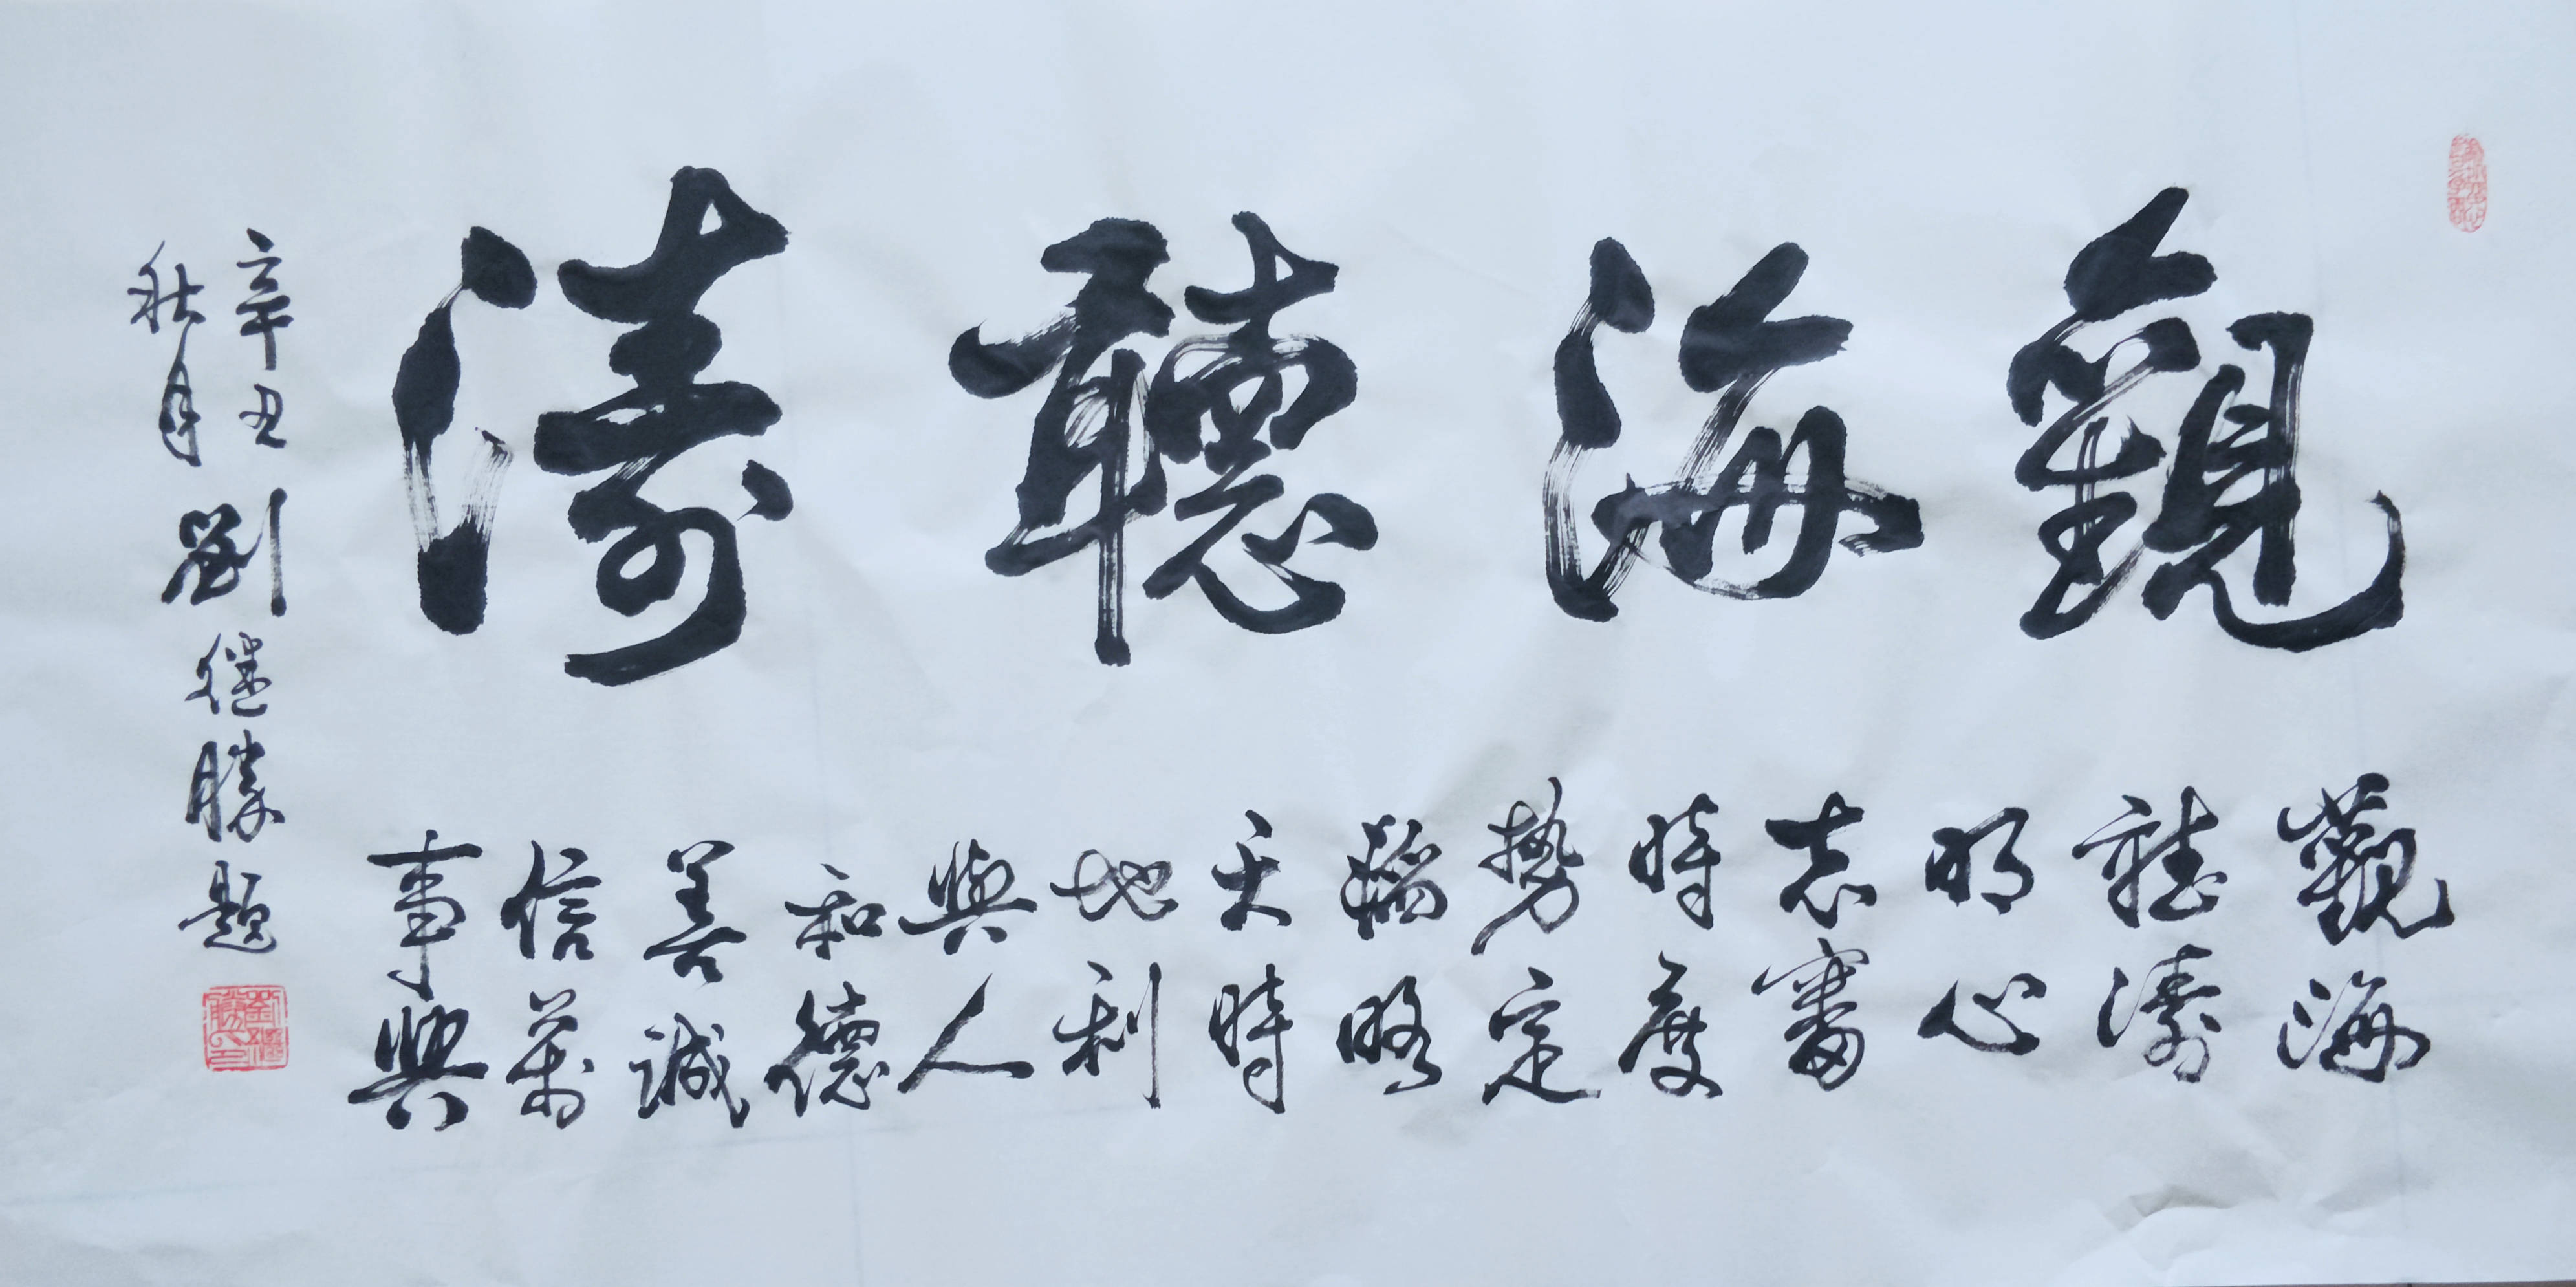 觀海聽濤
觀海
聽濤
明心
志審
時度
勢定
韜略
天時
地利
與人
和德
善誠
信萬
事興
辛丑
秋月
劉繼勝題